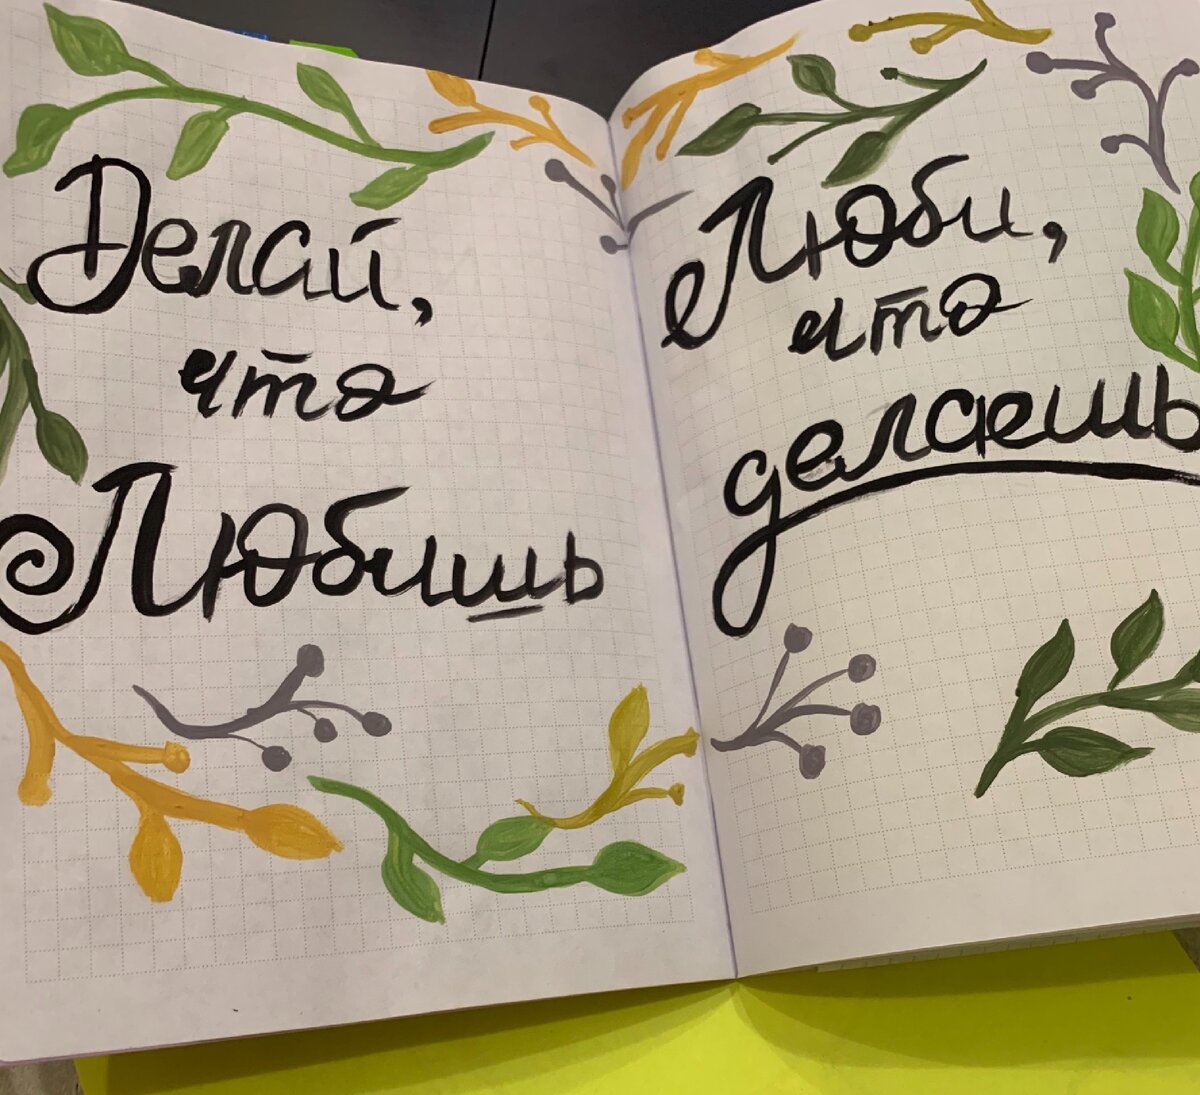 Делай,
что
Любишь
Люби,
что
делаешь